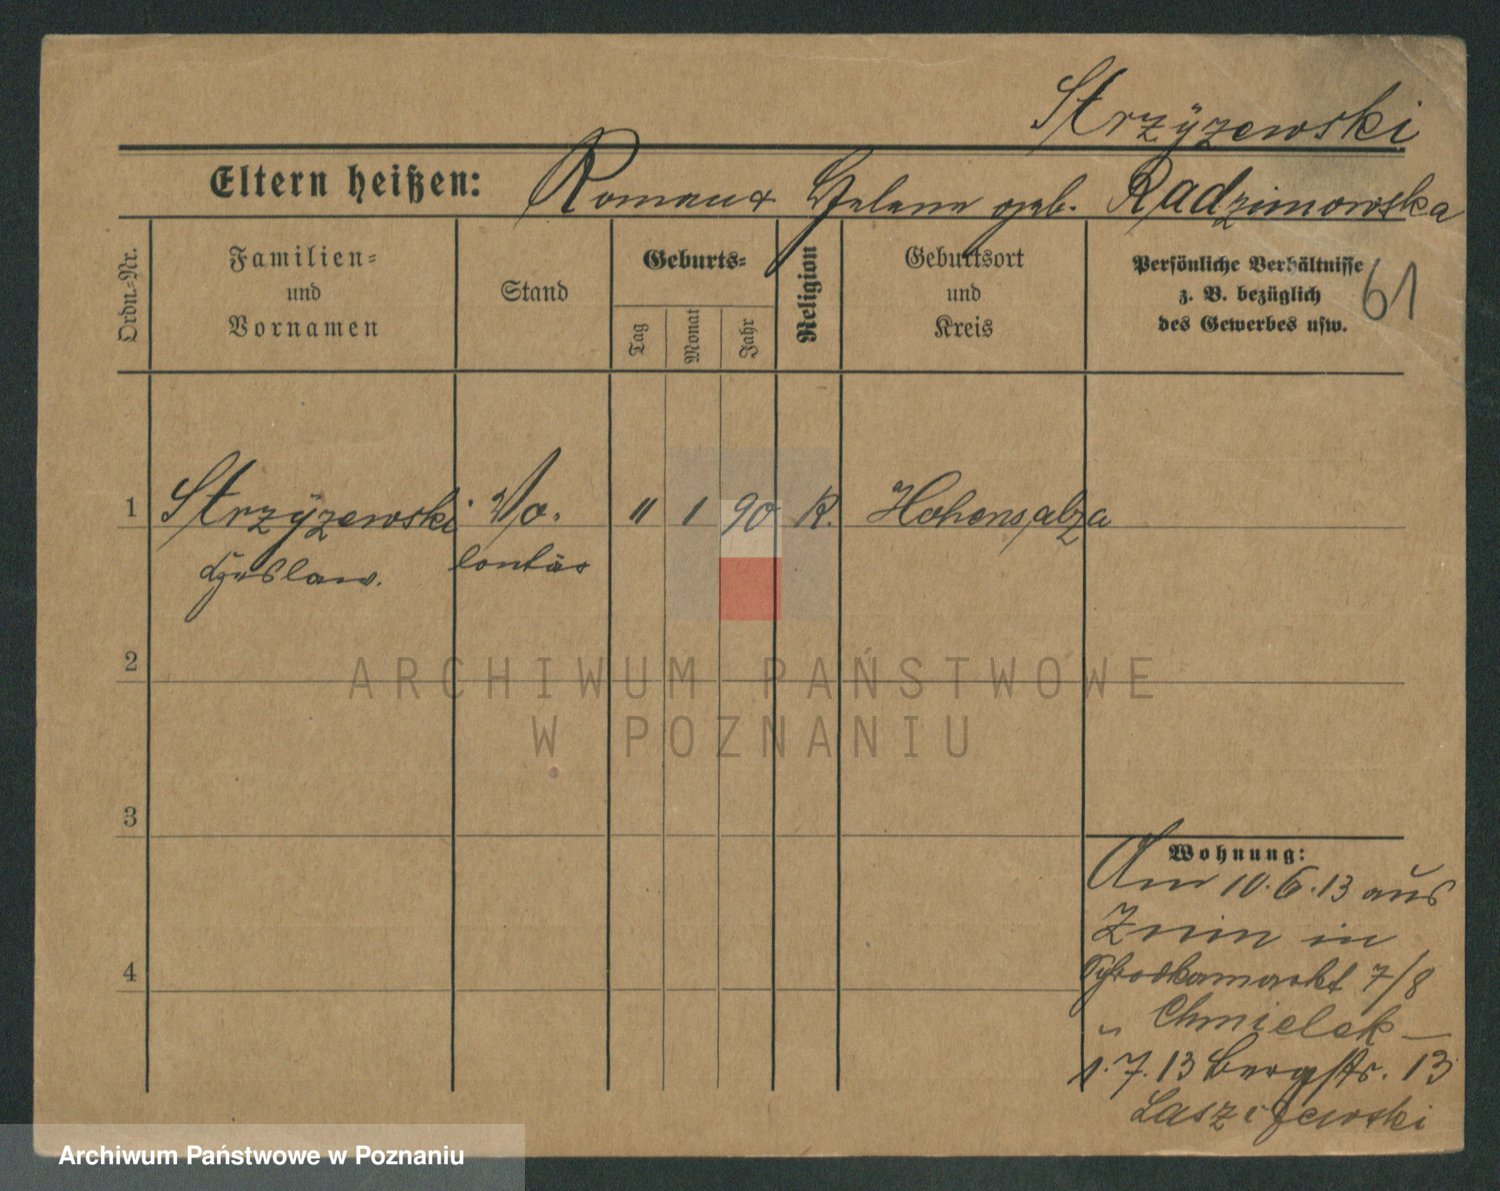 Strzÿzewski
Eltern heißen: Roman & Helene geb. Radzimowska
Ordn.-Nr.
Familien-
und
Vornamen
Stand
Geburts-
Tag
Monat
Jahr
Religion
Geburtsort
und
Kreis
Persönliche Verhältnisse
z. B. bezüglich
des Gewerbes usw.
61
1 Strzÿzewski Vo- " 1 90 K. Hohensalza
lontär
2
ARCHIWUM PAŃSTWOWE
W POZNANIU
3
Wohnung:
Am 10.6.13 aus
Znin in
Schrodkamarkt 7/8
" Chmielek —
1.7.13 Bergstr. 13
4
Archiwum Państwowe w Poznaniu